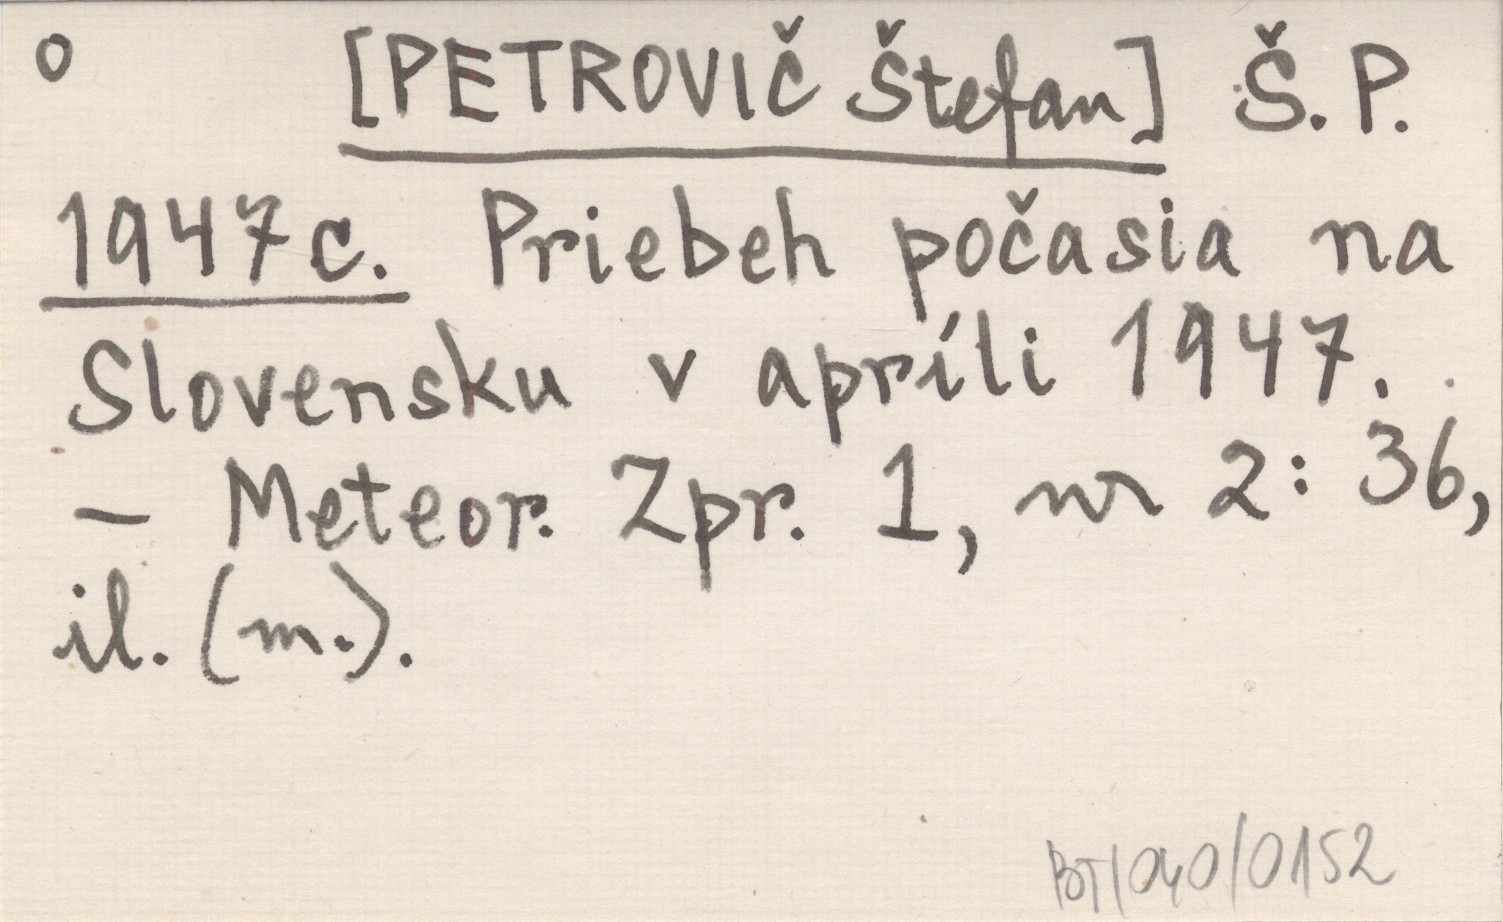 o [PETROVIČ Štefan] Š. P.
1947c. Priebeh počasia na
Slovensku v apríli 1947.
– Meteor. Zpr. 1, nr 2: 36,
il. (m.).
BT/040/0152